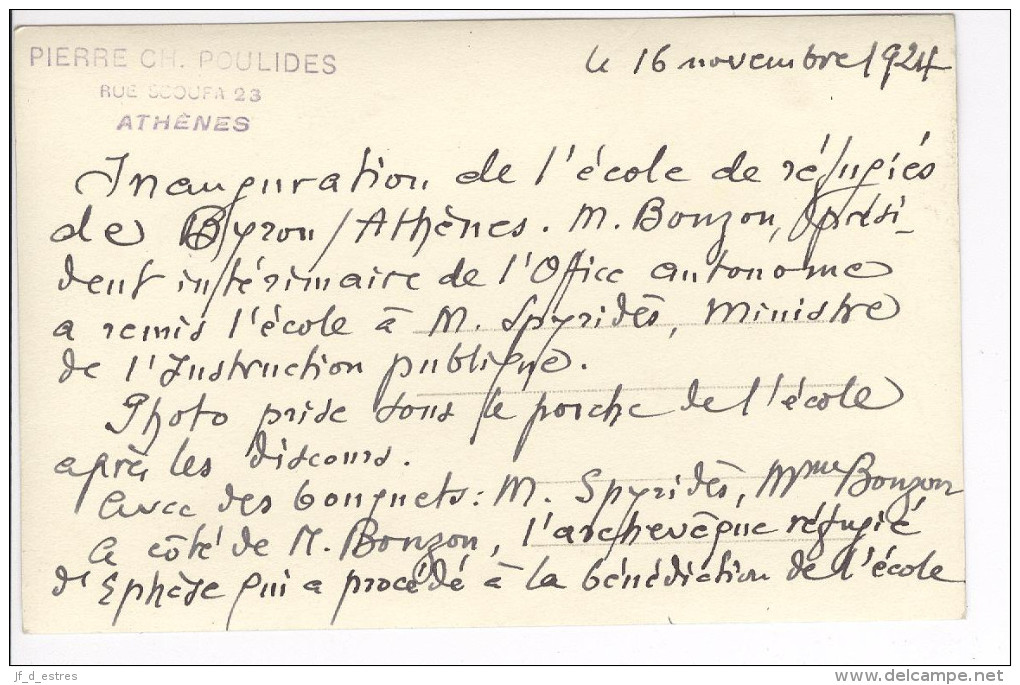 PIERRE CH. POULIDES
RUE SCOUFA 23
ATHÈNES
le 16 novembre 1924
Inauguration de l'école de réfugiés
de Byron/Athènes. M. Bonzon, prési-
dent intérimaire de l'Office autonome
a remis l'école à M. Spyridès, Ministre
de l'Instruction publique.
Photo prise sous le porche de l'école
après les discours.
Avec des bouquets: M. Spyridès, Mme Bonzon
A côté de M. Bonzon, l'archevêque réfugié
d'Ephèse qui a procédé à la bénédiction de l'école
jf_d_estres
www.delcampe.net